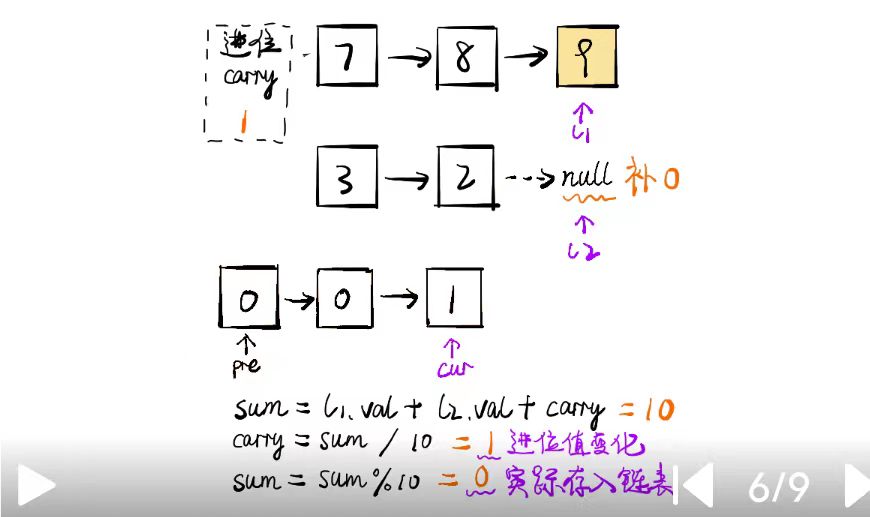 进位
carry
1
7 8 9
l1
3 2 null 补0
l2
0 0 1
pre cur
sum = l1.val + l2.val + carry = 10
carry = sum / 10 = 1 进位值变化
sum = sum%10 = 0 实际存入链表
6/9